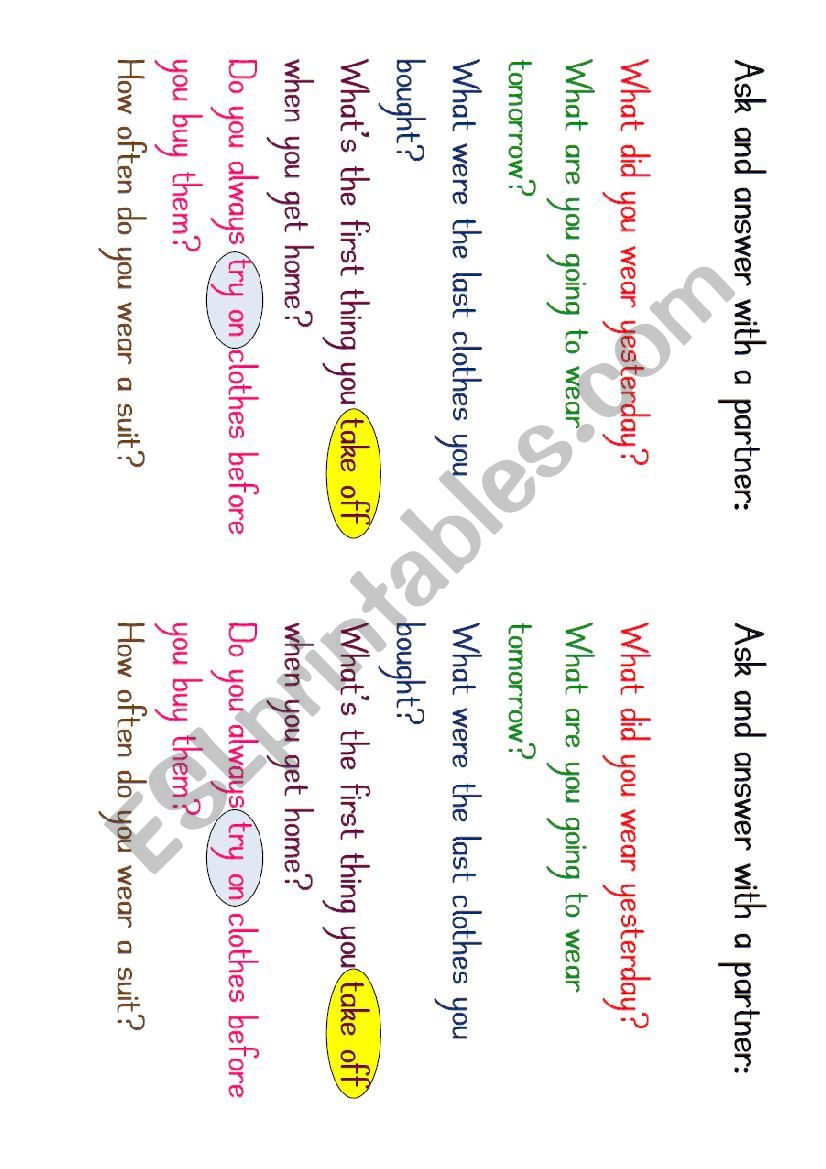 Ask and answer with a partner:
What did you wear yesterday?
What are you going to wear
tomorrow?
What were the last clothes you
bought?
What's the first thing you take off
when you get home?
Do you always try on clothes before
you buy them?
How often do you wear a suit?
Ask and answer with a partner:
What did you wear yesterday?
What are you going to wear
tomorrow?
What were the last clothes you
bought?
What's the first thing you take off
when you get home?
Do you always try on clothes before
you buy them?
How often do you wear a suit?
ESLprintables.com